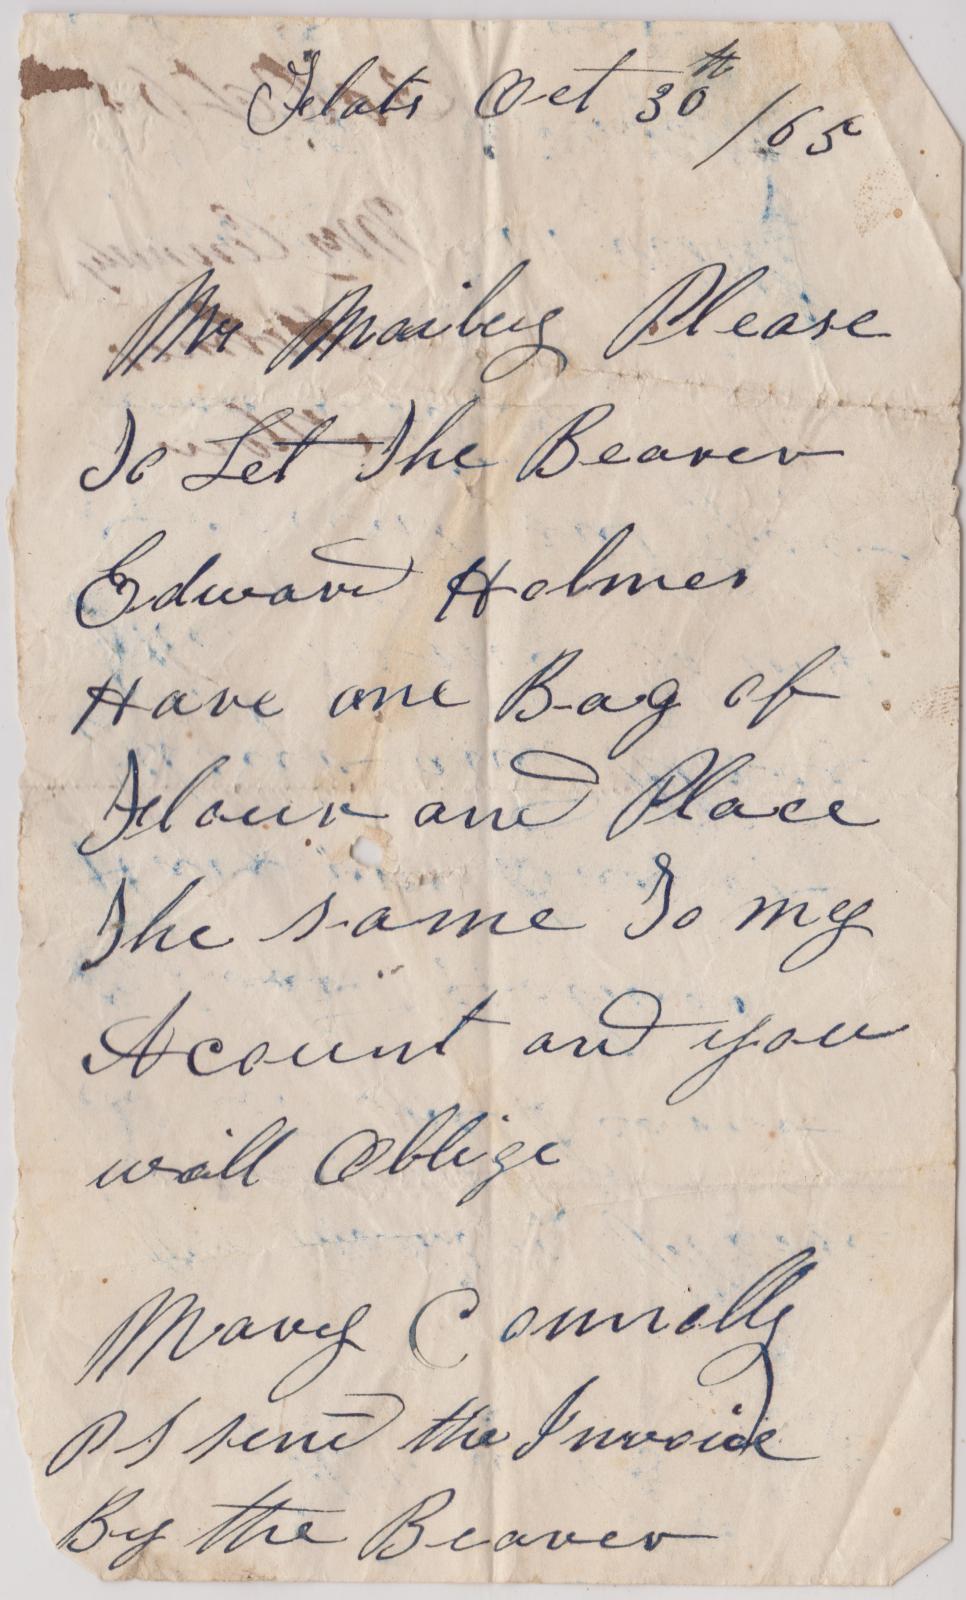 Flats Oct 30th /65
Mr Mailey Please
To Let The Bearer
Edward Holmes
Have one Bag of
Flour and Place
The same To my
Acount and you
will Oblige
Mary Connolly
PS send the Invoice
By the Bearer